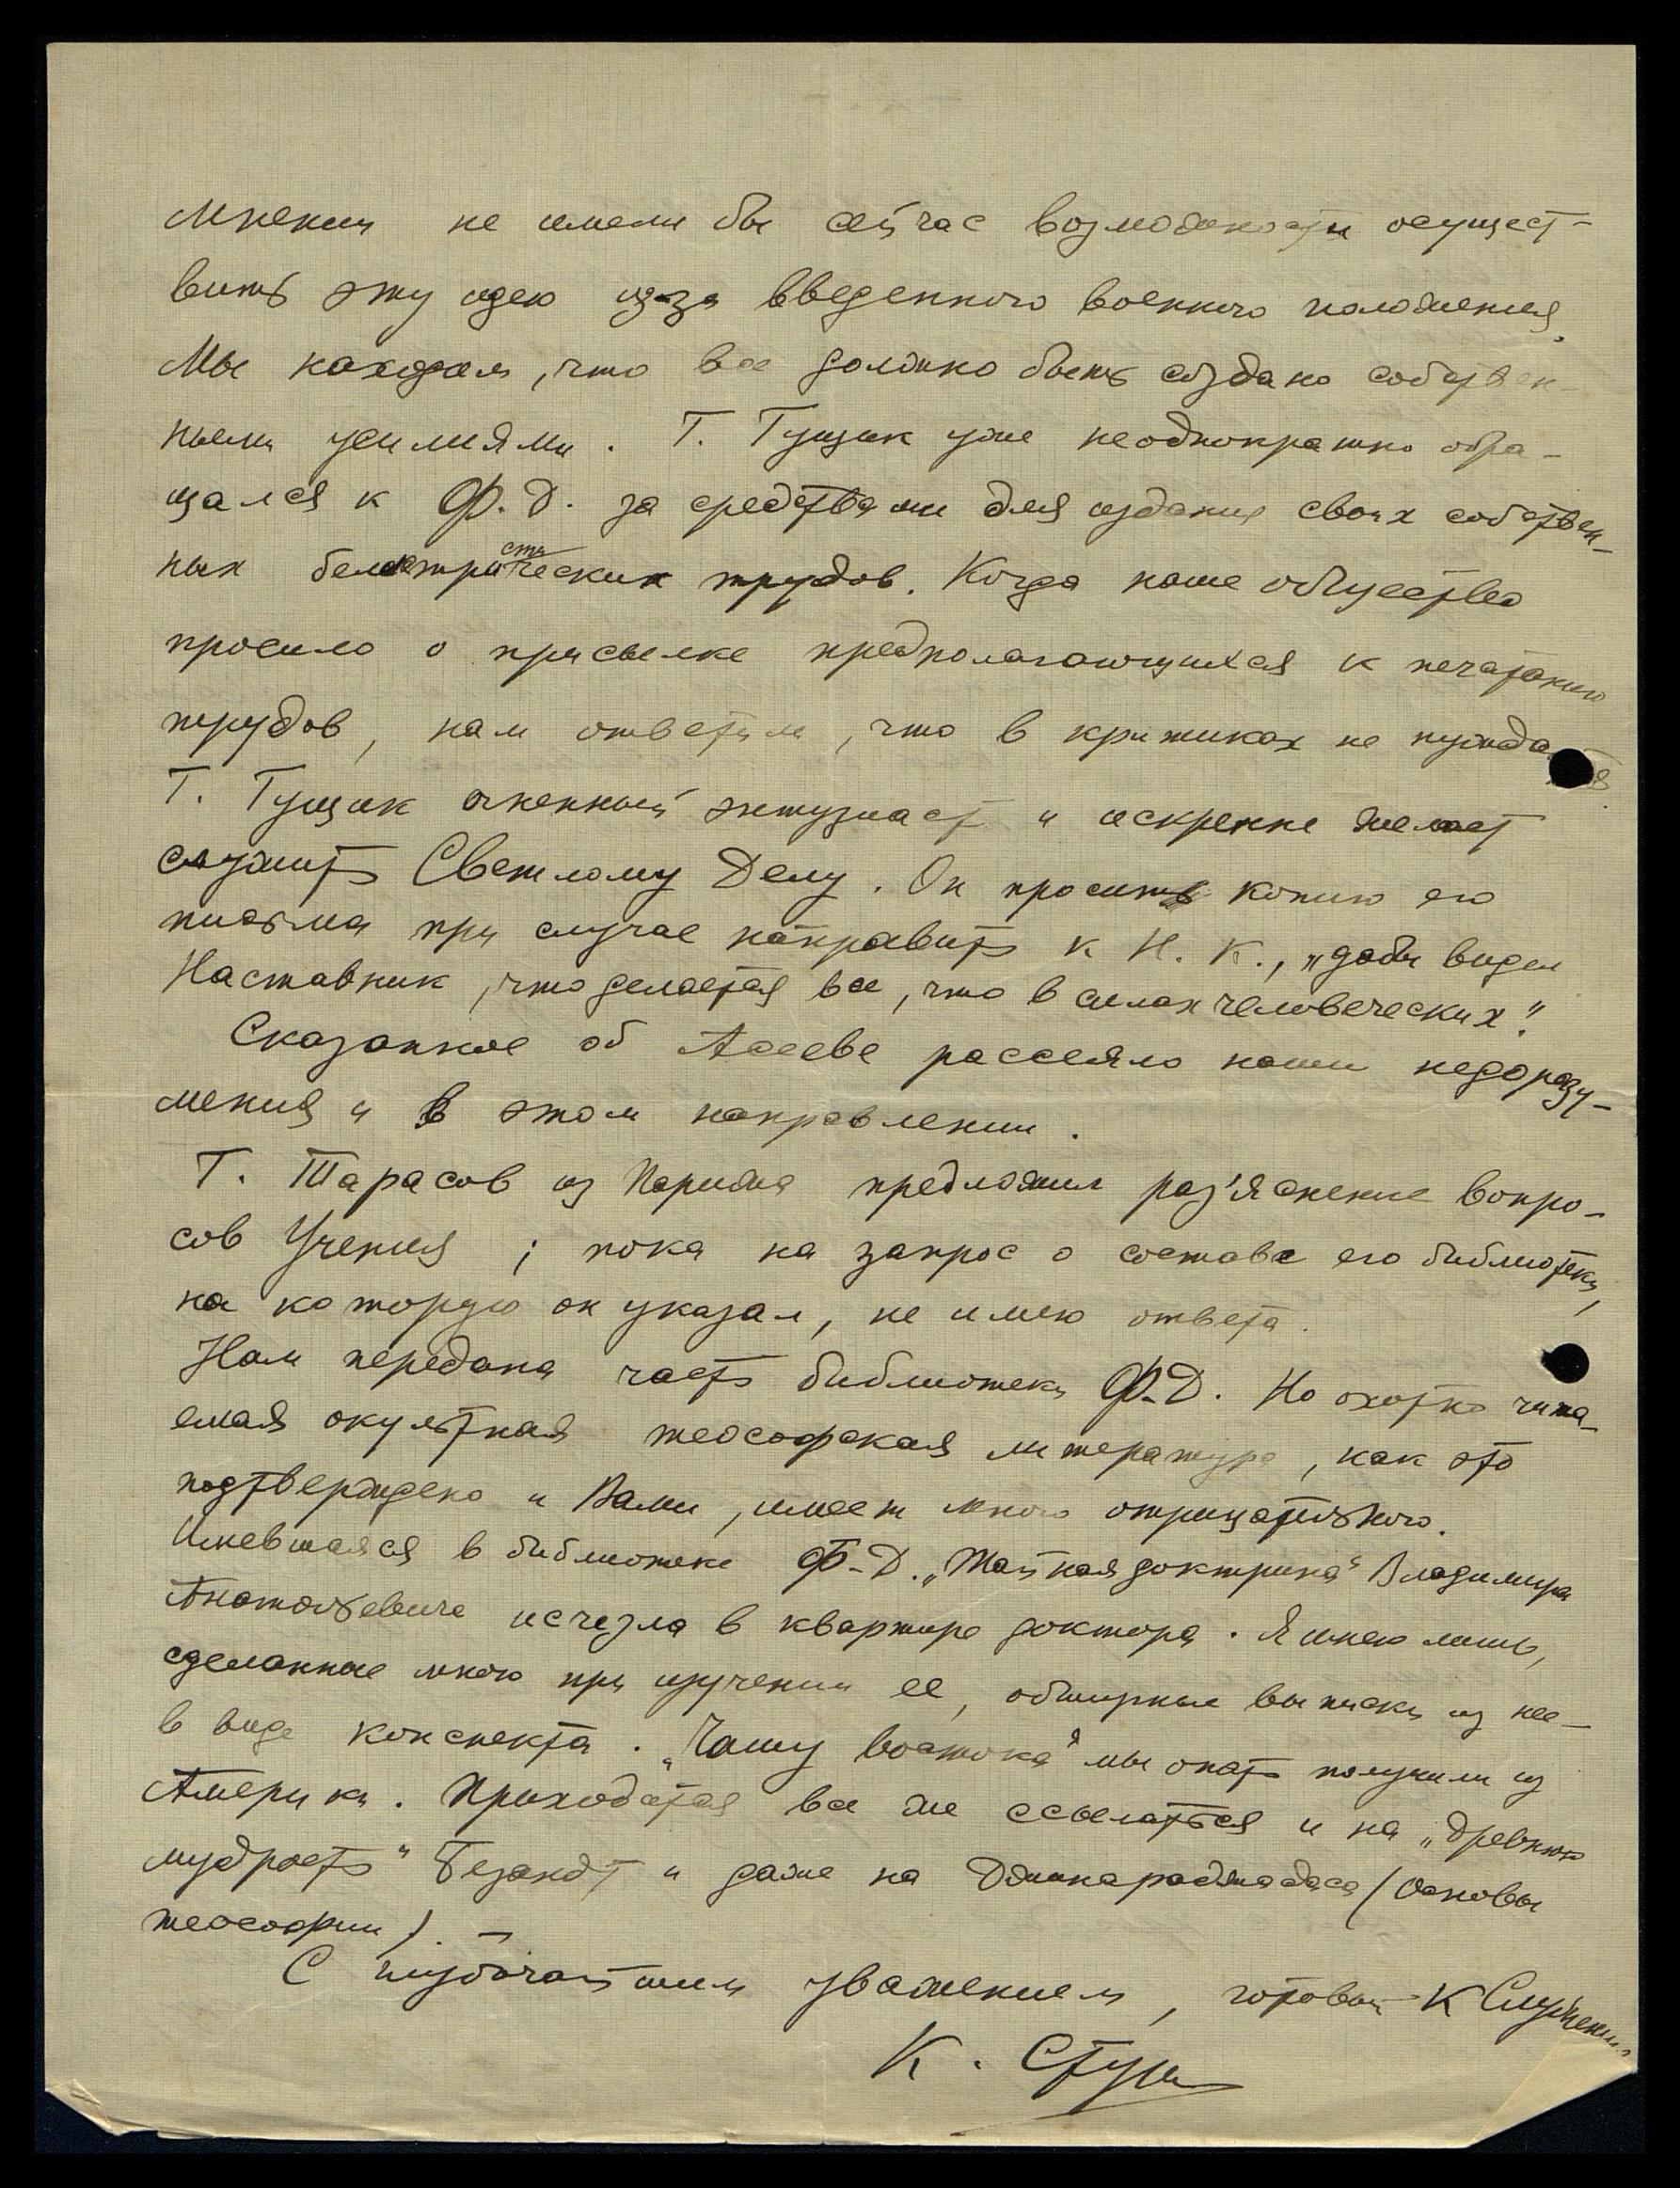 мнению не имели бы сейчас возможности осущест-
вить эту идею из-за введенного военного положения.
Мы находим, что все должно быть создано собствен-
ными усилиями. Т. Гущик уже неоднократно обра-
щался к Ф. Д. за средствами для издания своих собствен-
ных белетристических трудов. Когда наше общество
просило о присылке предполагающихся к печатанию
трудов, нам ответили, что в критиках не нужда
Т. Гущик огненный энтузиаст и искренне желает
служить Светлому Делу. Он просить копию его
письма при случае направить к Н. К., „дабы видел
Наставник, что делается все, что в силах человеческих".
Сказанное об Асееве рассеяло наши недоразу-
мения и в этом направлении.
Т. Тарасов из Парижа предложил раз'яснение вопро-
сов Учения; пока на запрос о составе его библиотеки,
на которую он указал, не имею ответа.
Нам передана часть библиотеки Ф. Д. Но охотно чита-
емая окультная теософская литература, как это
подтверждено и Вами, имеет много отрицательного.
Имевшаяся в библиотеке Ф. Д. „Тайная доктрина" Владимира
Анатольевича исчезла в квартире доктора. Я имею лишь,
сделанные мною при изучении ее, обширные выписки из нее -
в виде конспекта. „Чашу Востока" мы опять получили из
Америки. Приходится все же ссылаться и на „древнюю
мудрость" Безант и даже на Джинараджадаса (Основы
теософии). -
С глубочайшим уважением, готовый к Служению
К. Стурэ